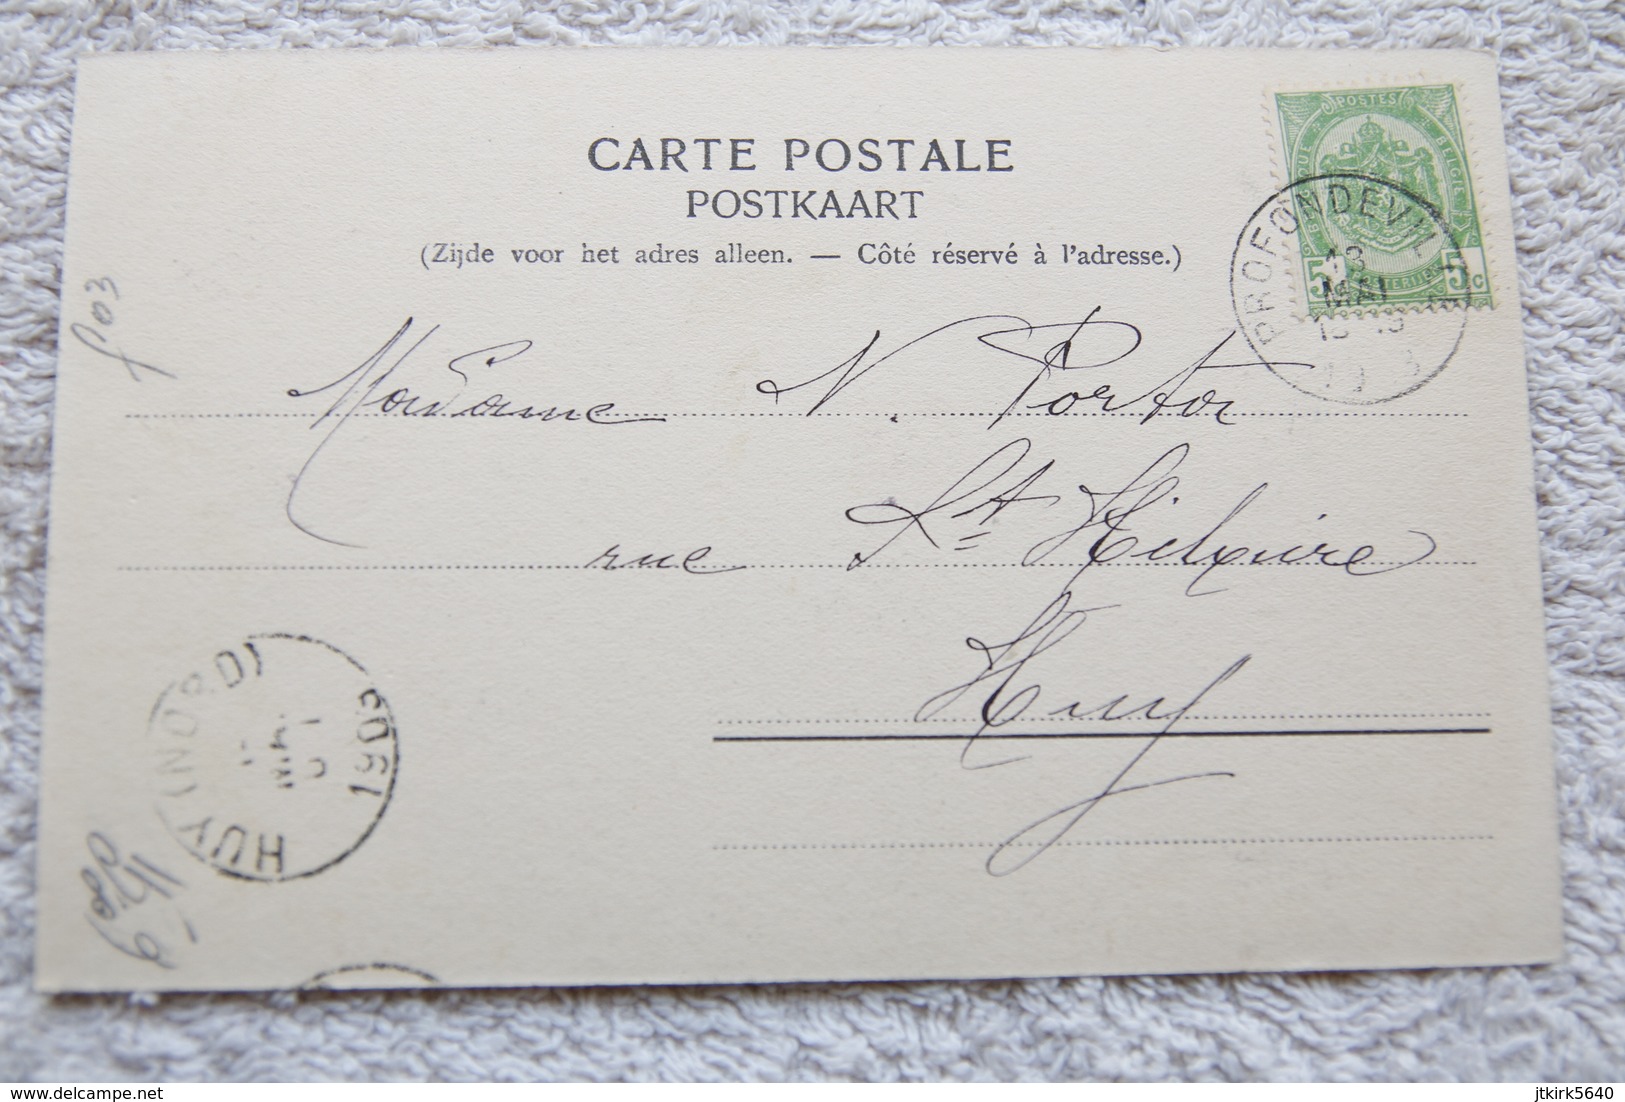 CARTE POSTALE
POSTKAART
(Zijde voor het adres alleen. — Côté réservé à l'adresse.)
POSTES
BELGIQUE BELGIE
5 5 c
PROFONDEVIL
13
MAI
Madame N. Portor
rue St Hilaire
Huy
HUY (NORD)
MAI
1903
f 03
delcampe.net
jtkirk5640